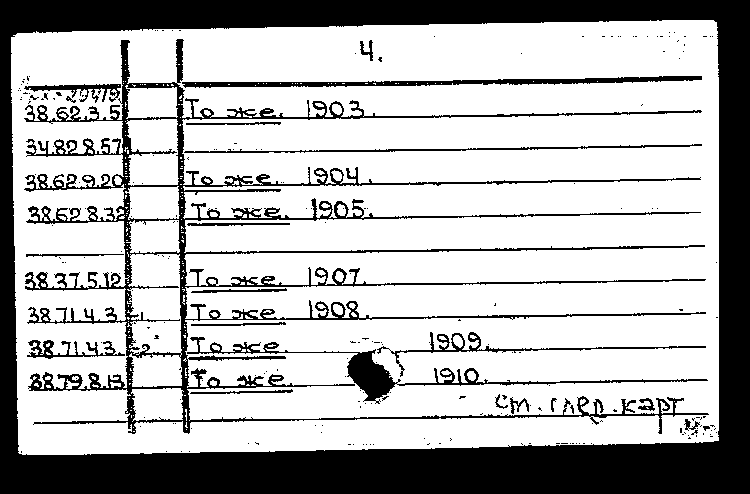 4.
38.62.3.5 То же. 1903.
34.82 8.57
38.62.9.20 То же. 1904.
38.62 8.32 То же. 1905.
38.37.5.12 То же. 1907.
38.71.4.3 -1 То же. 1908.
38.71.4.3. -2 То же 1909.
38.79.8.13 То же. 1910.
см. след. карт